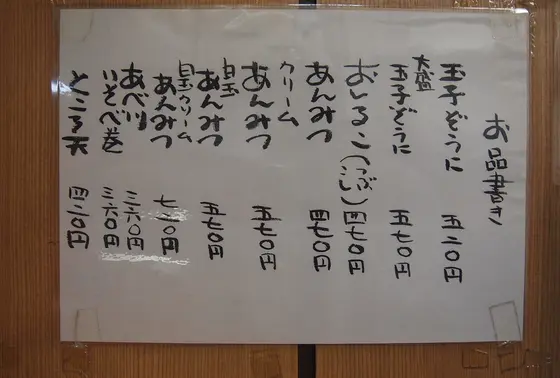 お品書き
玉子ぞうに 五二〇円
大盛
玉子ぞうに 五七〇円
おしるこ(つぶ・こし) 四七〇円
あんみつ 四七〇円
クリーム
あんみつ 五七〇円
白玉
あんみつ 五七〇円
白玉クリーム
あんみつ 七二〇円
あべ川 三六〇円
いそべ巻 三六〇円
ところ天 四二〇円